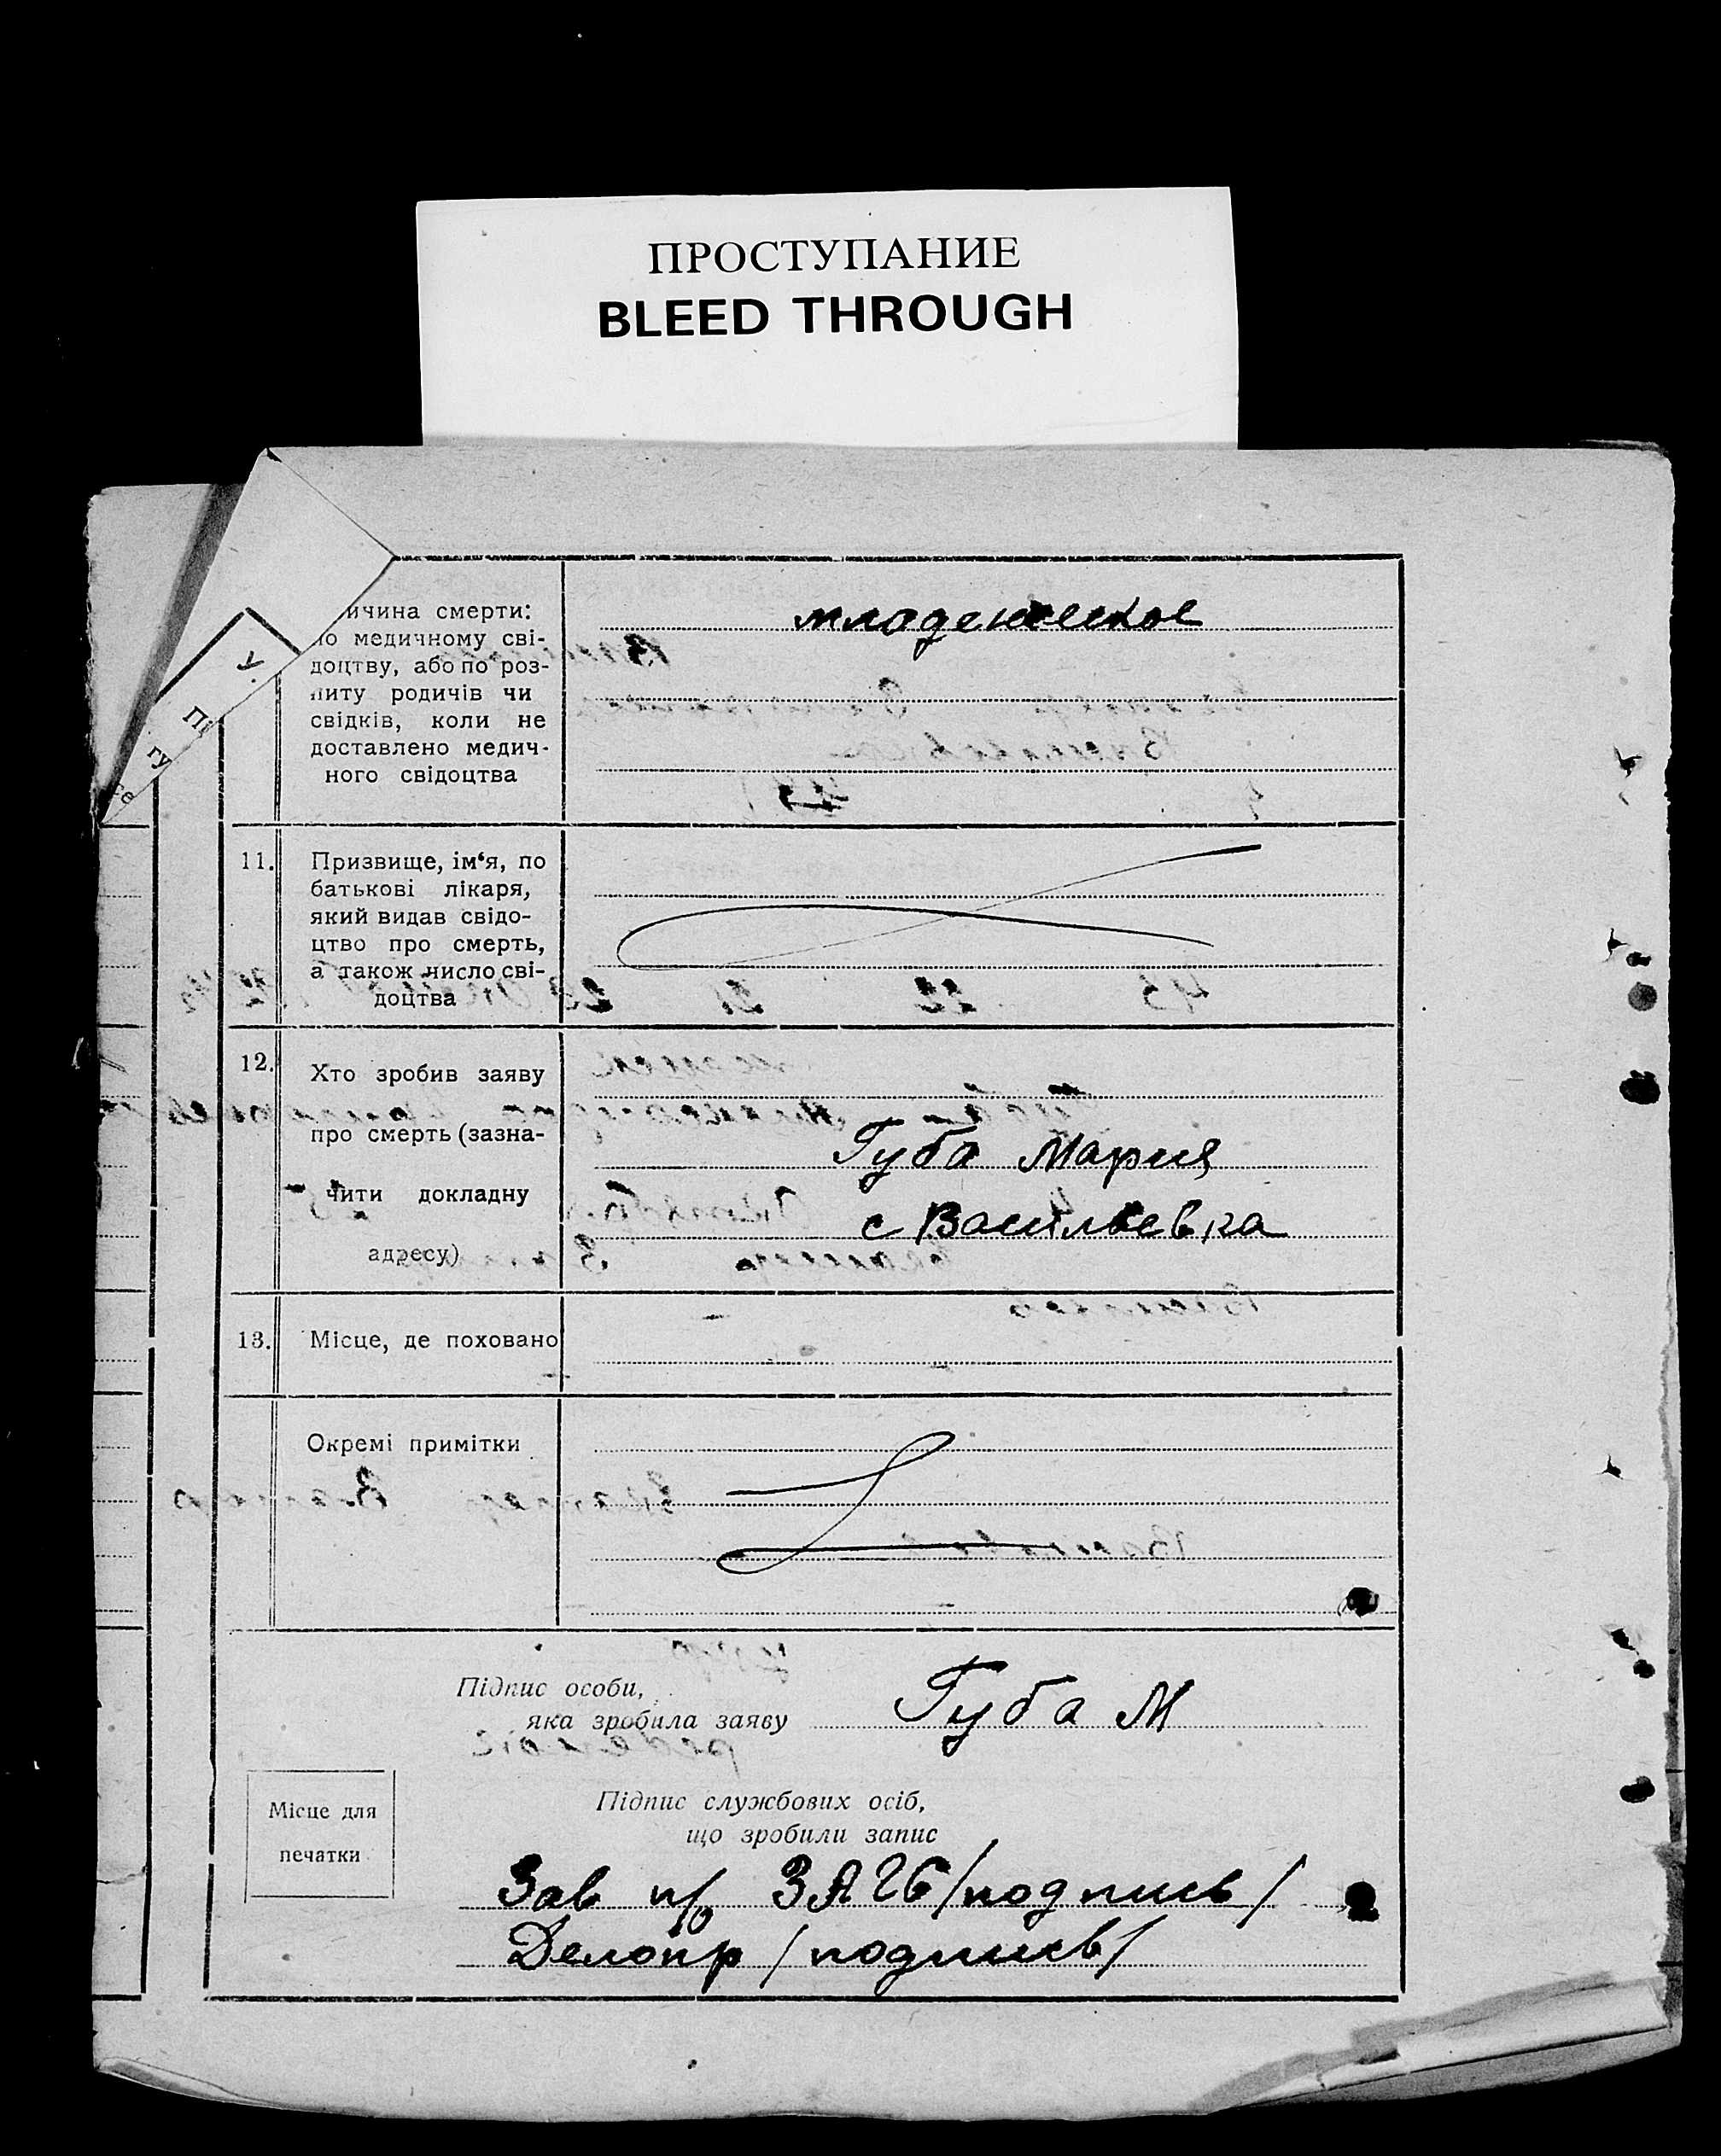 ПРОСТУПАНИЕ
BLEED THROUGH
У.
Пі
гу
се
ичина смерти:
по медичному сві-
доцтву, або по роз-
питу родичів чи
свідків, коли не
доставлено медич-
ного свідоцтва
младенческое
11.
Призвище, ім‘я, по
батькові лікаря,
який видав свідо-
цтво про смерть,
а також число сві-
доцтва
12.
Хто зробив заяву
про смерть (зазна-
чити докладну
адресу)
Губа Мария
с Васильевка
13.
Місце, де поховано
Окремі примітки
Підпис особи,
яка зробила заяву
Губа М
Місце для
печатки
Підпис службових осіб,
що зробили запис
Зав п/о ЗАГС /подпись/
Делопр /подпись/